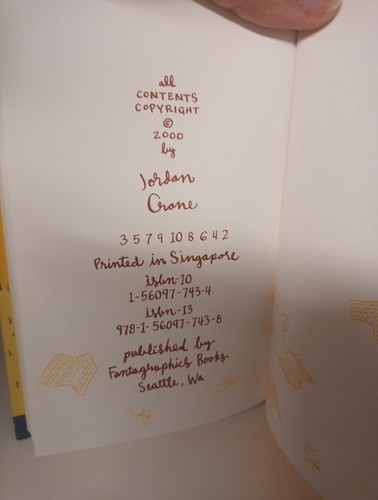 all
CONTENTS
COPYRIGHT
©
2000
by
Jordan
Crane
3 5 7 9 10 8 6 4 2
Printed in Singapore
isbn-10
1-56097-743-4
isbn-13
978-1-56097-743-8
published by
Fantagraphics Books
Seattle, Wa